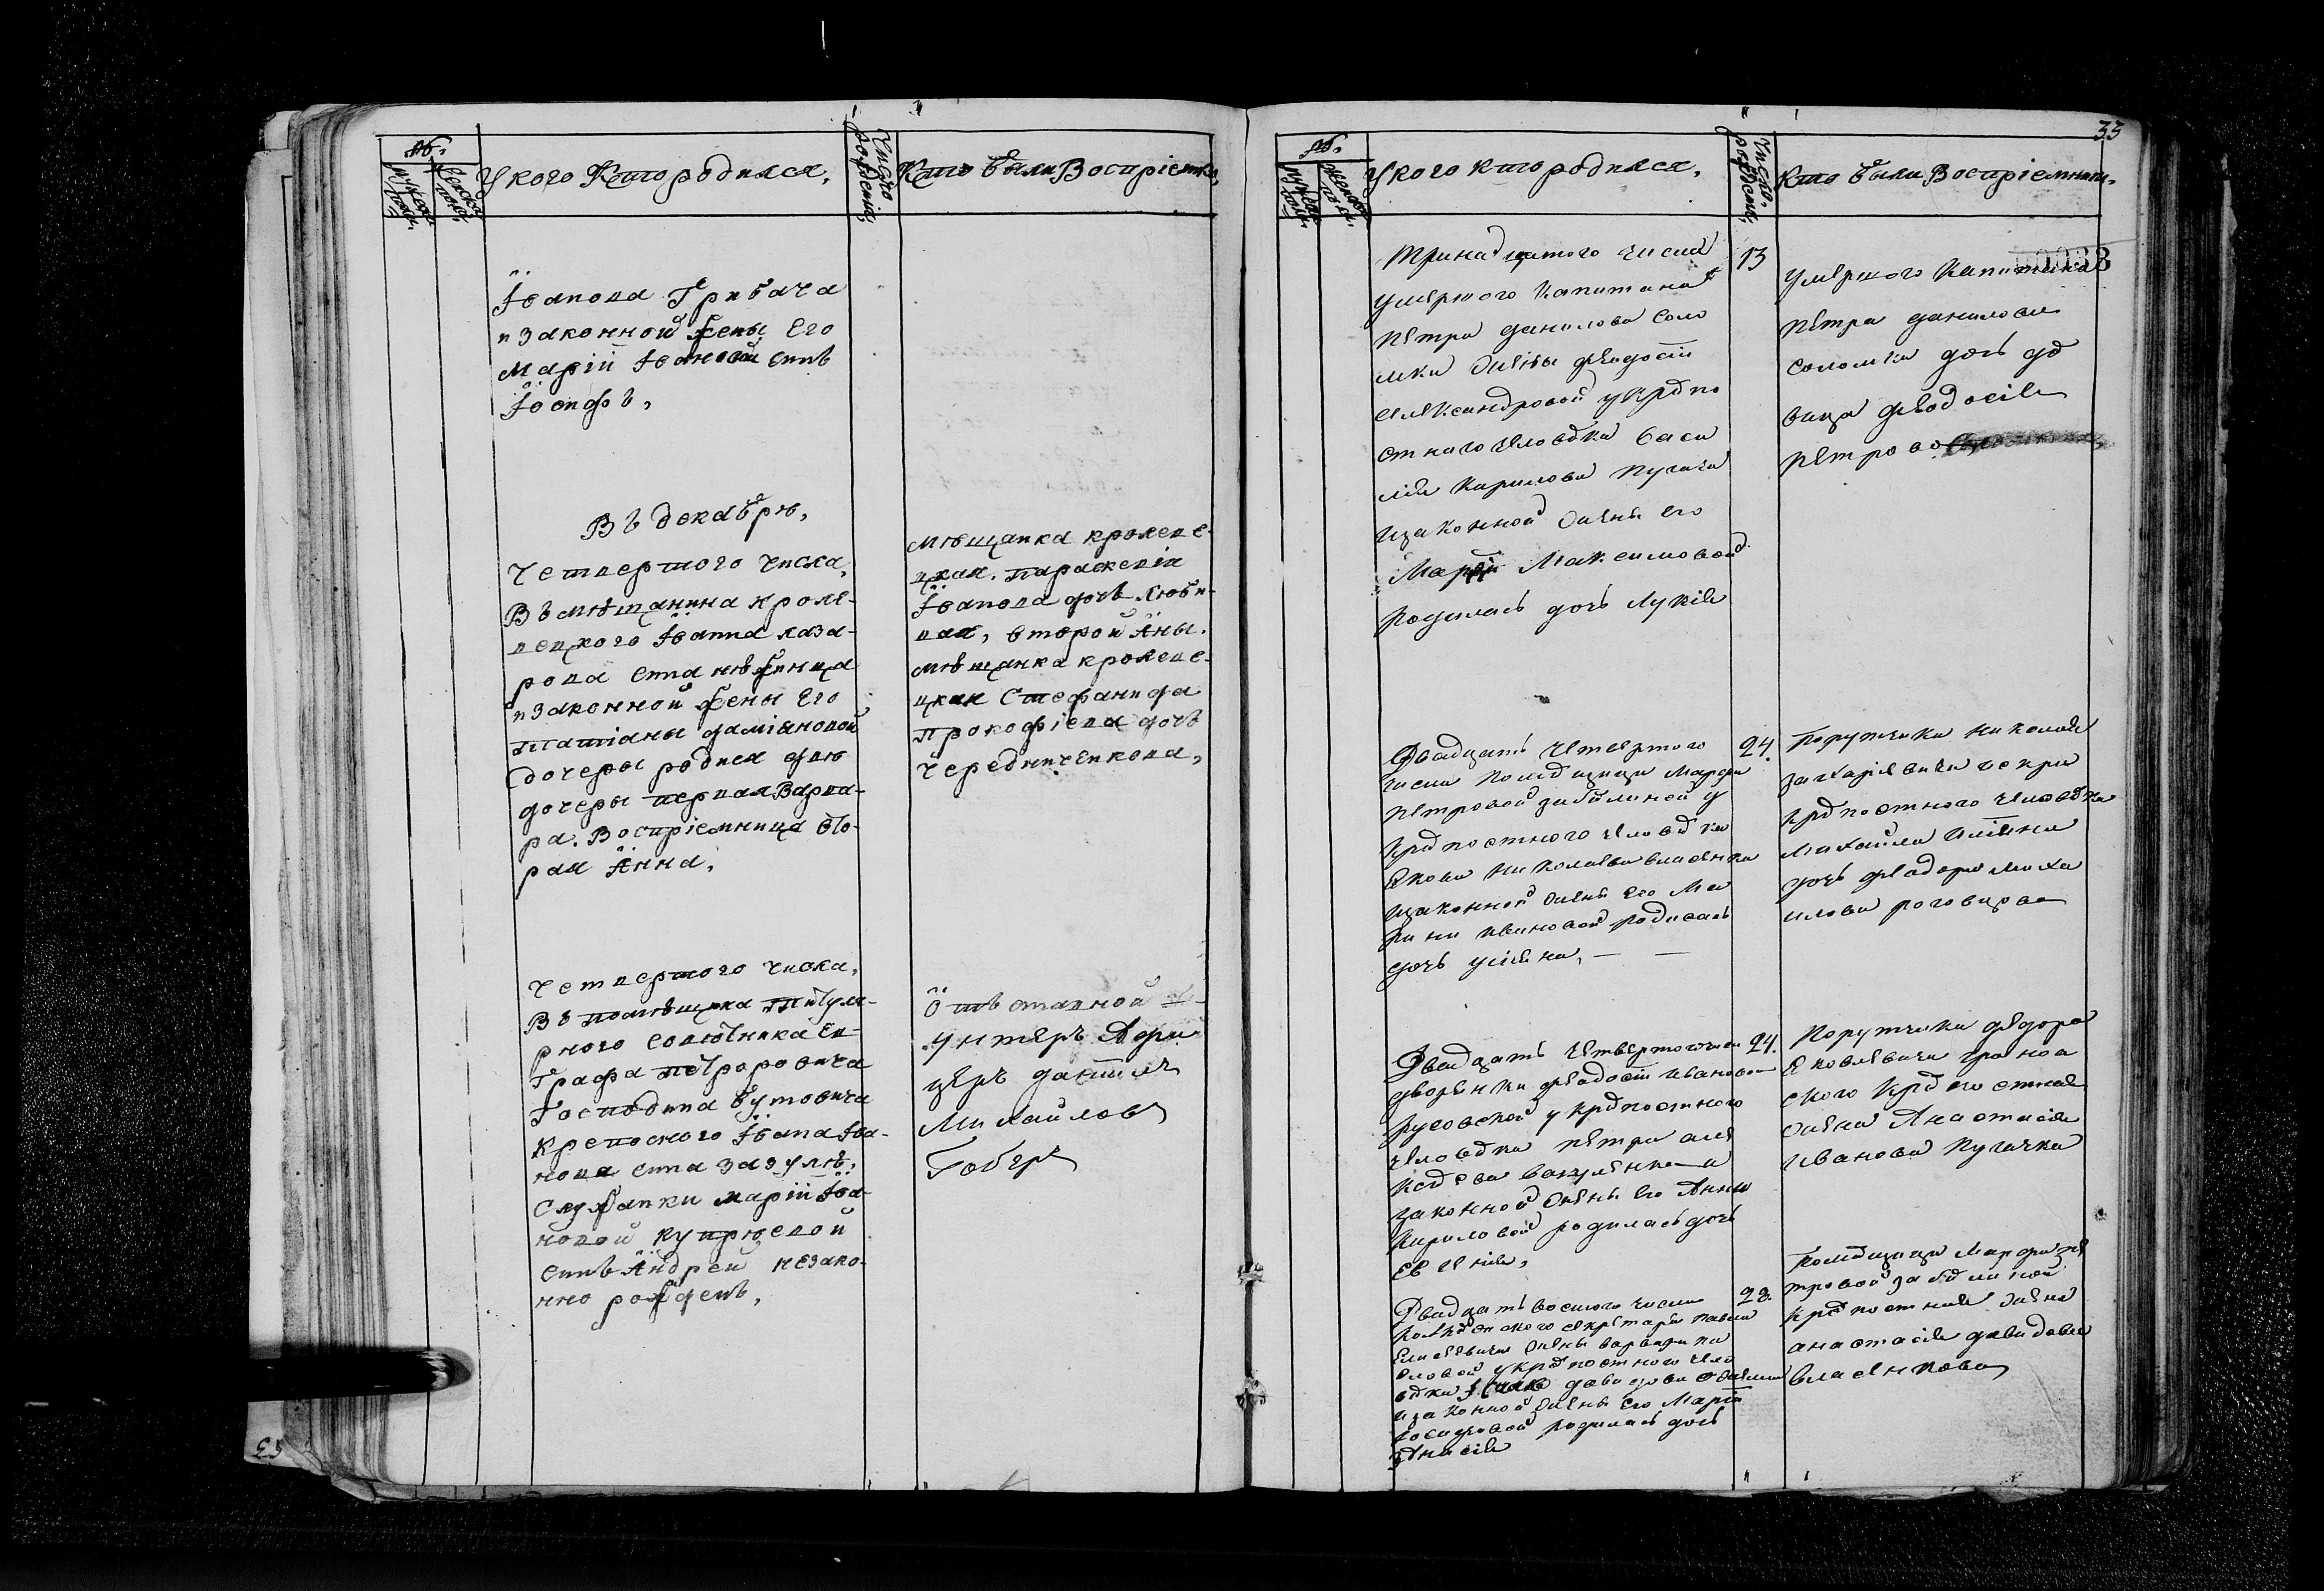 №.
мужеска пола.
женска пола.
У кого Кто родился.
Число рожденія,
Кто были Воспріемники,
Іванова Грибача
и законной жены Его
Маріи Івановой сынъ
Іосифъ,
Въ декабрѣ,
Четвертого числа,
Въ мѣщанина кроле-
вецкого Іванна лаза-
рова сына нѣжинца
и законной жены Его
татіаны даміановой
дочеры родися двѣ
дочеры первая Варва-
ра. Воспріемница Вто-
рая Анна.
мѣщанка кролеве-
цкая. параскевія
Іванова дочъ Люби-
вая, второй Аны.
мѣщанка кролеве-
цкая Стефанида
Прокофіева дочъ
Чередниченкова,
Четвертого числа,
Въ помѣщика Титуля-
рного совѣтника Ев-
графа петроровича
Господина бутовича
крепосного Івана Іва-
нова сына зазулѣ,
Служанки маріи Іва-
новой купрѣевой
сынъ Андрей незако-
нно рожденъ,
Отъ ставной
унтеръ Афи
церъ даніилъ
Михайловъ
Гоберъ
33
№.
мужеска пола.
женска пола.
У кого кто родился.
Число рожденія,
Кто были Воспріемники.
00033
Тринадцатого числа
умершого Капитана
Петра данилова соло
мки жены феодосіи
александровой у крѣпо
стного человѣка васи
лія Кирилова Пугача
изаконной жены его
Маріи Максимовой
родилась дочь Лукія
13
умершого Капитана
Петра данилова
соломки дочь дѣ
вица феодосія
Петрова
Двадцать четвертого
числа помѣщици Марфи
Петровой забѣлиной у
крѣпостного человѣка
Якова Николаева власенка
изаконной жены его Ма
рины Ивановой родилась
дочь уліяна,
24.
Порутчика Николая
захаріевича искри
крѣпостного человѣка
Михайла
дочь феодора Миха
илова роговцова
Двадцать четвертого числа
дворянки феодосіи Ивановой
русовской у крѣпостного
человѣка Петра але
ксѣева вакуленка и
законной жены его Анны
Кириловой родилась дочь
Евгенія,
24.
Порутчика федора
Яковлевича
ского крѣпостная
жена Анастасія
Иванова Пугачка
Двадцать восмого числа
коллѣжского секретаря павла
Елисеевича жены варвари па
вловой у крѣпостного чело
вѣка давидова
изаконной жены его Маріи
Іосифовой родилась дочь
28.
Помѣщици Марфи пе
тровой забѣлиной
крѣпостная жена
анастасія давидова
власенкова